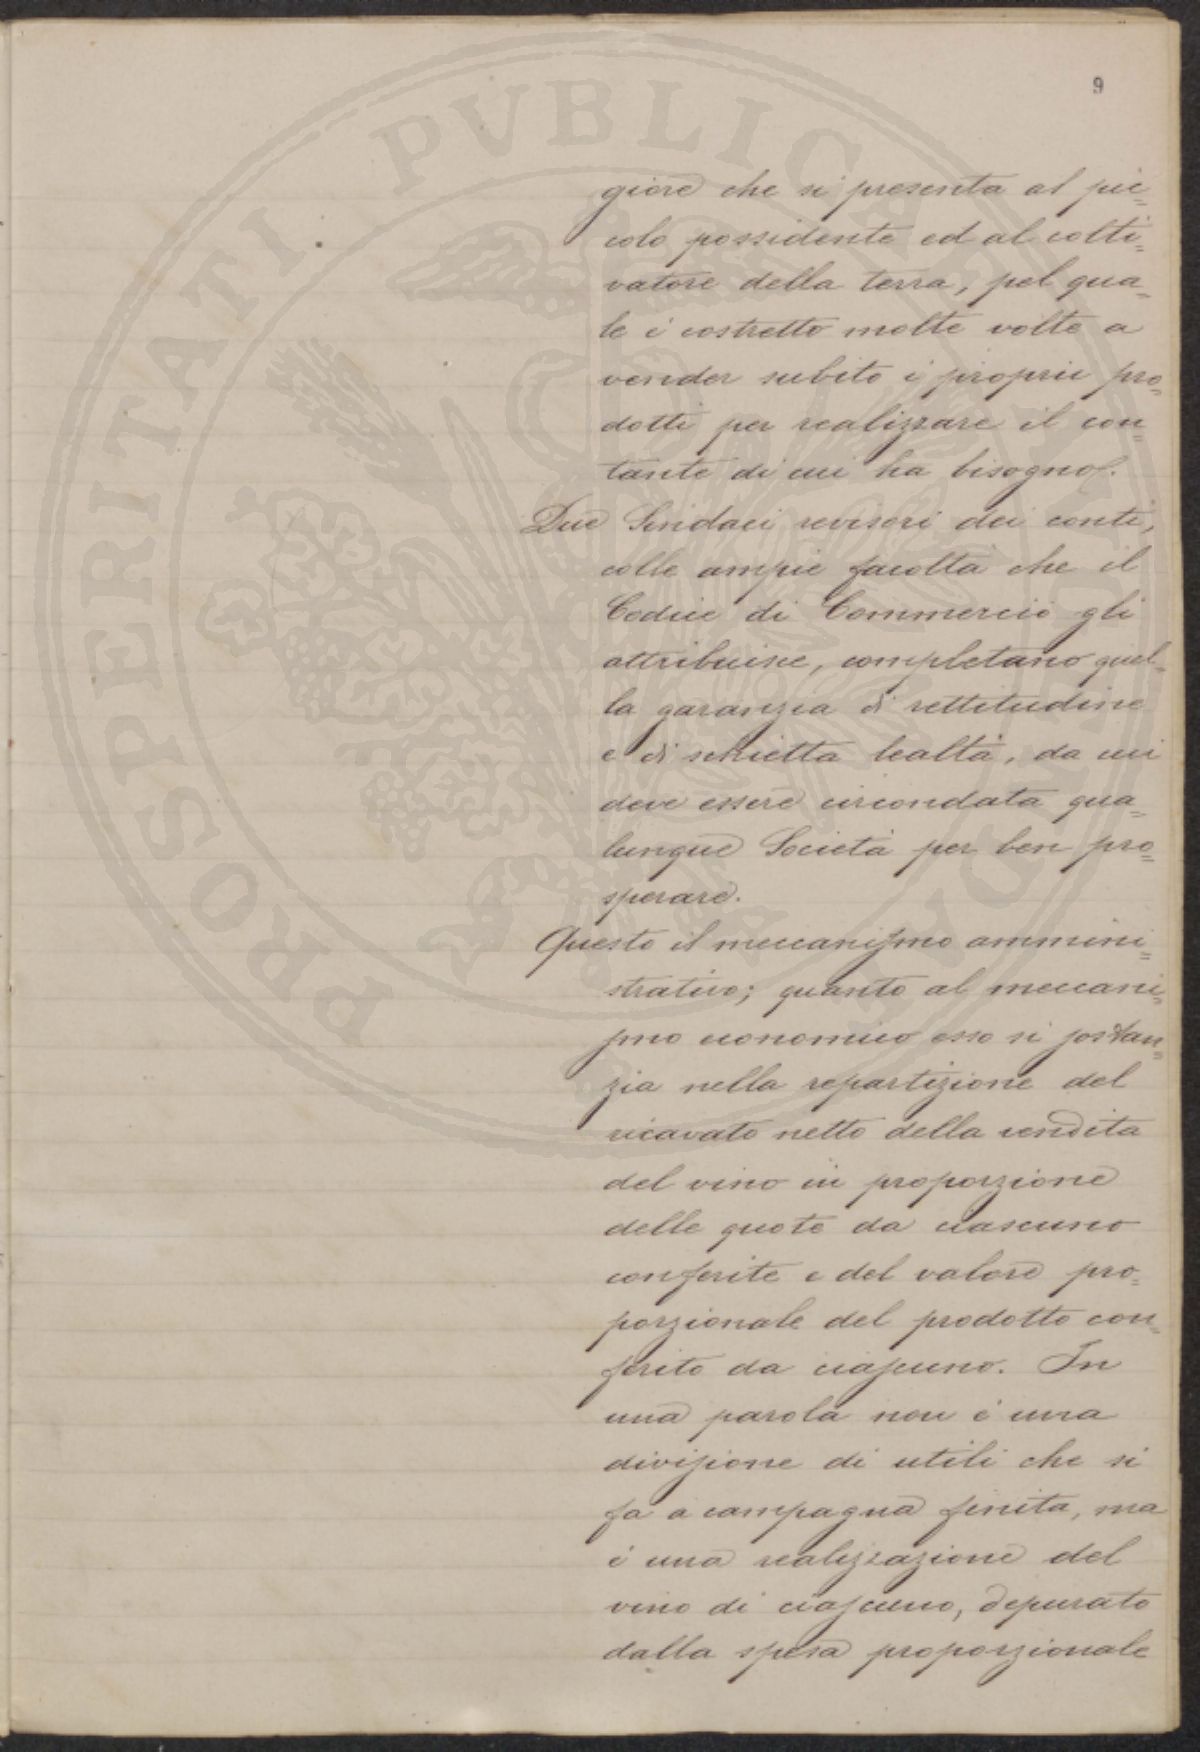 9
giore che si presenta al pic=
colo possidente ed al colti=
vatore della terra, pel qua=
le è costretto molte volte a
vender subito i proprii pro=
dotti per realizzare il con=
tante di cui ha bisogno.
Due Sindaci revisori dei conti,
colle ampie facoltà che il
Codice di Commercio gli
attribuisce, completano quel=
la garanzia di rettitudine
e di schietta lealtà, da cui
deve essere circondata qua=
lunque Società per ben pro=
sperare.
Questo il meccanismo ammini=
strativo; quanto al meccani=
smo economico esso si sostan=
zia nella repartizione del
ricavato netto della vendita
del vino in proporzione
delle quote da ciascuno
conferite e del valore pro=
porzionale del prodotto con=
ferito da ciascuno. In
una parola non è una
divisione di utili che si
fa a campagna finita, ma
è una realizzazione del
vino di ciascuno, depurato
dalla spesa proporzionale
PROSPERITATI PVBLICAE